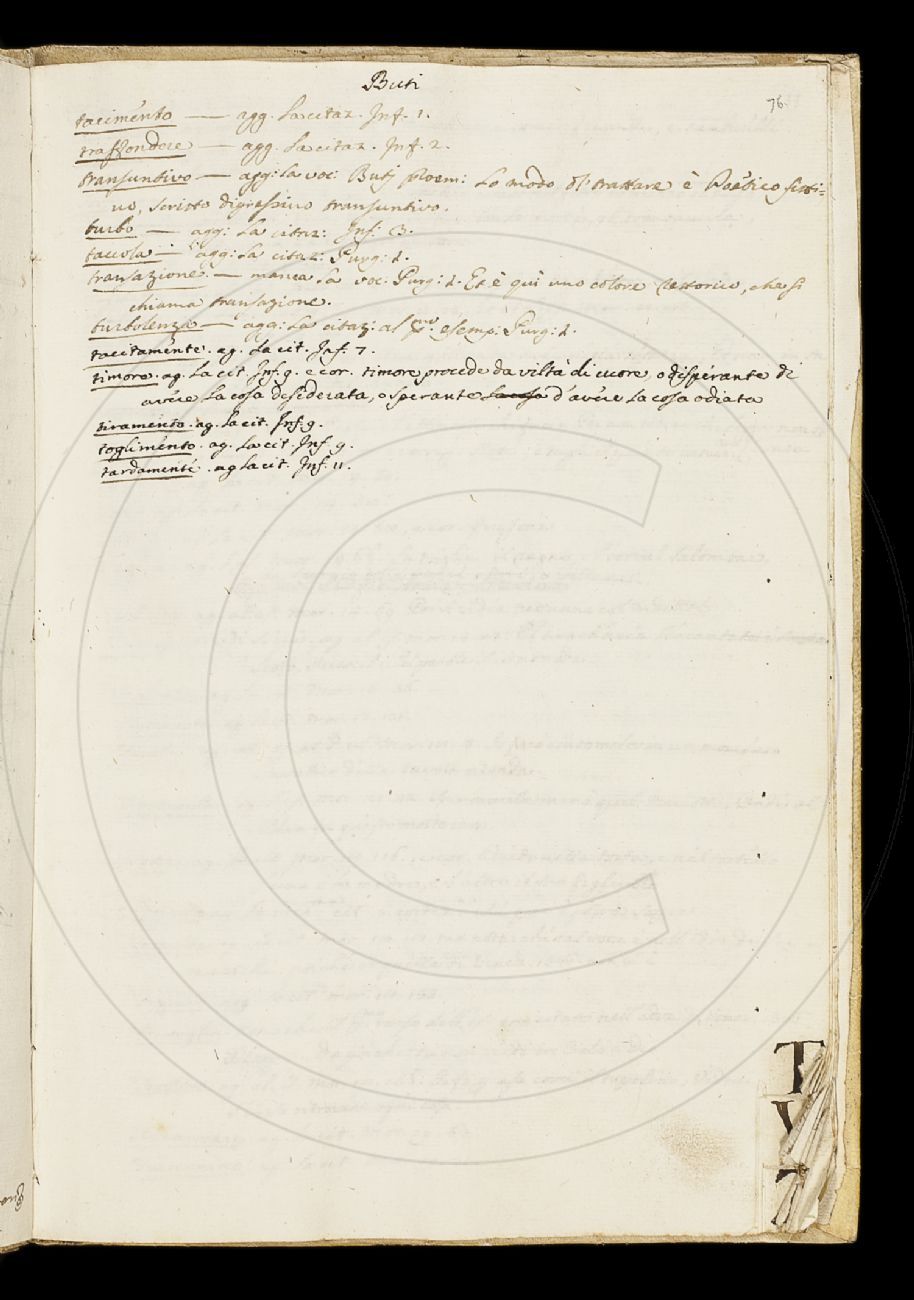 Buti
76.
tacimento — agg. la citaz. Inf. 1.
trasfondere — agg. la citaz. Inf. 2.
transuntivo — agg: la voc: Buti proem: Lo modo di trattare è Poëtico fitti=
vo, scritto digressivo transuntivo.
turbo — agg: la citaz: Inf: 3.
taccola — agg: la citaz: Purg: 1.
translazione. — manca la voc. Purg: 1. Et è quì uno colore Rettorico, che si
chiama translazione.
turbolenza — agg: la citaz: al esemp: Purg: 1.
tacitamente. ag. la cit. Inf. 7.
timore. ag. la cit. Inf. 9. e cor. timore procede da viltà di cuore, o disperante di
avere la cosa desiderata, o sperante la cosa d'avere la cosa odiata
tiramento. ag. la cit. Inf. 9.
toglimento. ag. la cit. Inf. 9.
tardamente. ag la cit. Inf. 11.
T
V
Z
C